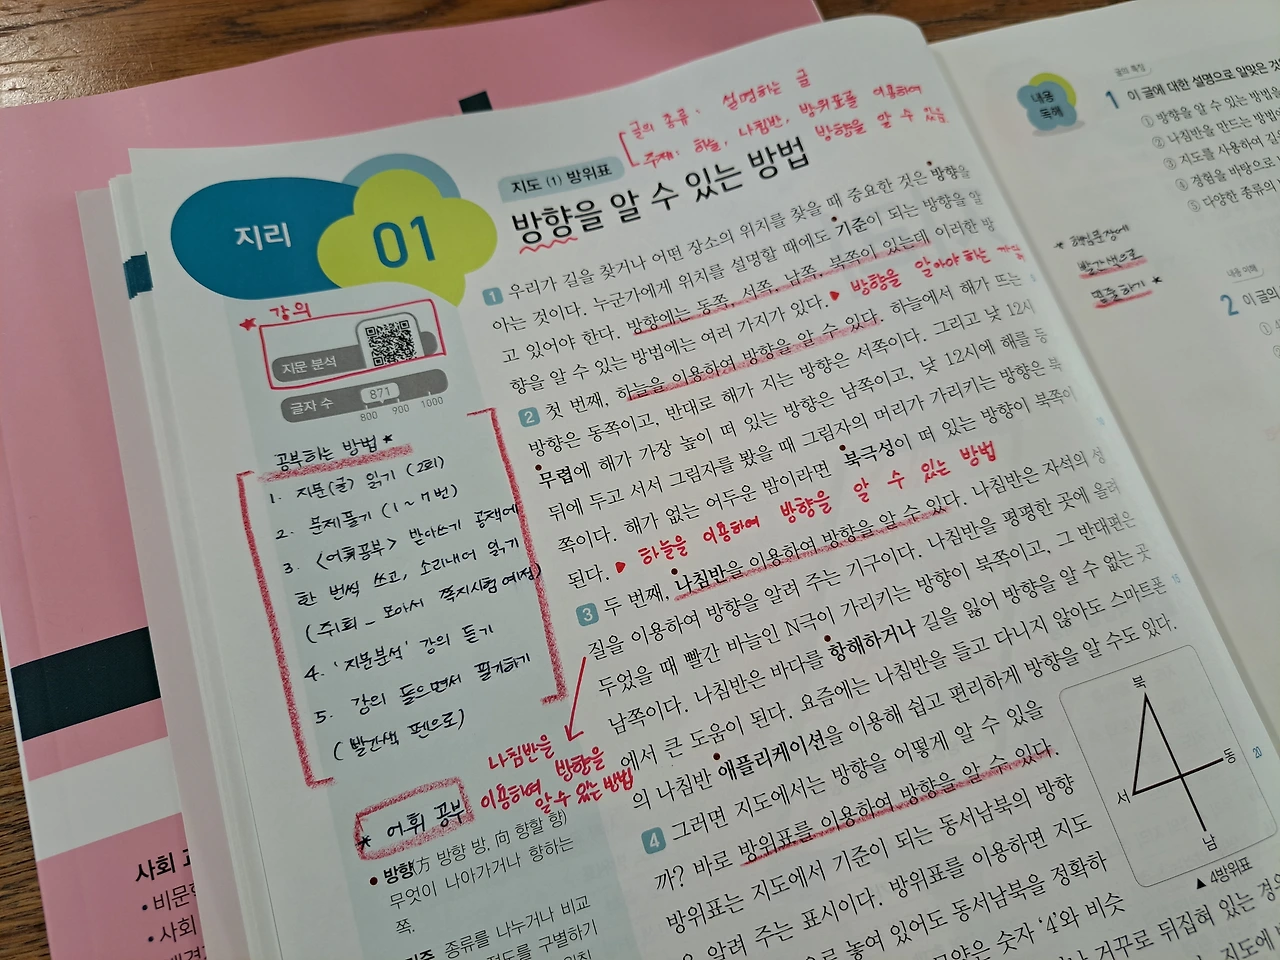 글의 종류: 설명하는 글
주제: 하늘, 나침반, 방위표를 이용하여
방향을 알 수 있음
지도 (1) 방위표
방향을 알 수 있는 방법
지리
01
강의
지문 분석
글자 수
871
800 900 1000
공부하는 방법
1. 지문(글) 읽기 (2회)
2. 문제풀기 (1~7번)
3. <어휘공부> 받아쓰기 공책에
한 번씩 쓰고, 소리내어 읽기
(주1회 - 모아서 쪽지시험 예정)
4. '지문분석' 강의 듣기
5. 강의 들으면서 필기하기
(빨간색 펜으로)
어휘 공부
방향 方 방향 방, 向 향할 향
무엇이 나아가거나 향하는
쪽.
종류를 나누거나 비교
정도를 구별하기
1 우리가 길을 찾거나 어떤 장소의 위치를 찾을 때 중요한 것은 방향을
아는 것이다. 누군가에게 위치를 설명할 때에도 기준이 되는 방향을 알
고 있어야 한다. 방향에는 동쪽, 서쪽, 남쪽, 북쪽이 있는데 이러한 방
향을 알 수 있는 방법에는 여러 가지가 있다. ▶ 방향을 알아야 하는 까닭
2 첫 번째, 하늘을 이용하여 방향을 알 수 있다. 하늘에서 해가 뜨는
방향은 동쪽이고, 반대로 해가 지는 방향은 서쪽이다. 그리고 낮 12시
무렵에 해가 가장 높이 떠 있는 방향은 남쪽이고, 낮 12시에 해를 등
뒤에 두고 서서 그림자를 봤을 때 그림자의 머리가 가리키는 방향은 북
쪽이다. 해가 없는 어두운 밤이라면 북극성이 떠 있는 방향이 북쪽이
된다. ▶ 하늘을 이용하여 방향을 알 수 있는 방법
3 두 번째, 나침반을 이용하여 방향을 알 수 있다. 나침반은 자석의 성
질을 이용하여 방향을 알려 주는 기구이다. 나침반을 평평한 곳에 올려
두었을 때 빨간 바늘인 N극이 가리키는 방향이 북쪽이고, 그 반대편은
남쪽이다. 나침반은 바다를 항해하거나 길을 잃어 방향을 알 수 없는 곳
에서 큰 도움이 된다. 요즘에는 나침반을 들고 다니지 않아도 스마트폰
의 나침반 애플리케이션을 이용해 쉽고 편리하게 방향을 알 수도 있다.
나침반을
이용하여 방향을
알 수 있는 방법
4 그러면 지도에서는 방향을 어떻게 알 수 있을
까? 바로 방위표를 이용하여 방향을 알 수 있다.
방위표는 지도에서 기준이 되는 동서남북의 방향
을 알려 주는 표시이다. 방위표를 이용하면 지도
로 놓여 있어도 동서남북을 정확하
모양은 숫자 '4'와 비슷
거꾸로 뒤집혀 있는
지도에
15
20
북
동
서
남
▲ 4방위표
내용
독해
글의 특징
1 이 글에 대한 설명으로 알맞은
① 방향을 알 수 있는 방법을
② 나침반을 만드는 방법
③ 지도를 사용하여
④ 경험을 바탕으로
⑤ 다양한 종류의
* 핵심문장에
빨간색으로
밑줄하기 *
내용 이해
2 이 글의
①
사회
• 비문학
• 사회